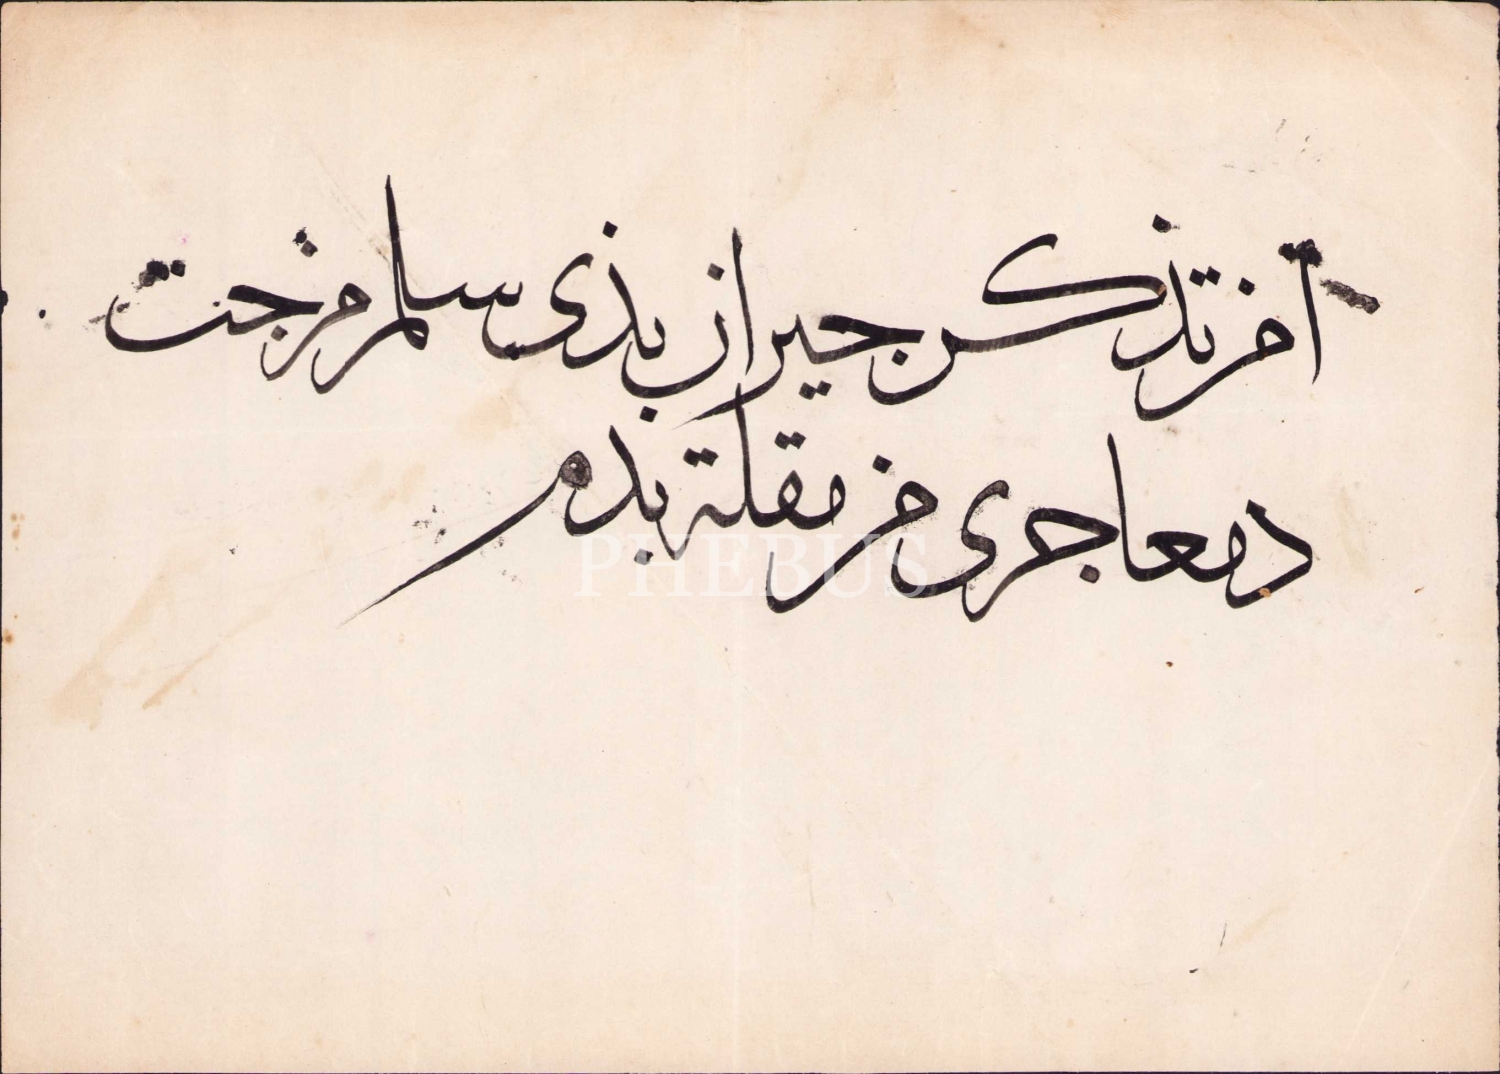 أمن تذكر جيران بذى سلم مزجت
دمعا جرى من مقلة بدم
PHEBUS